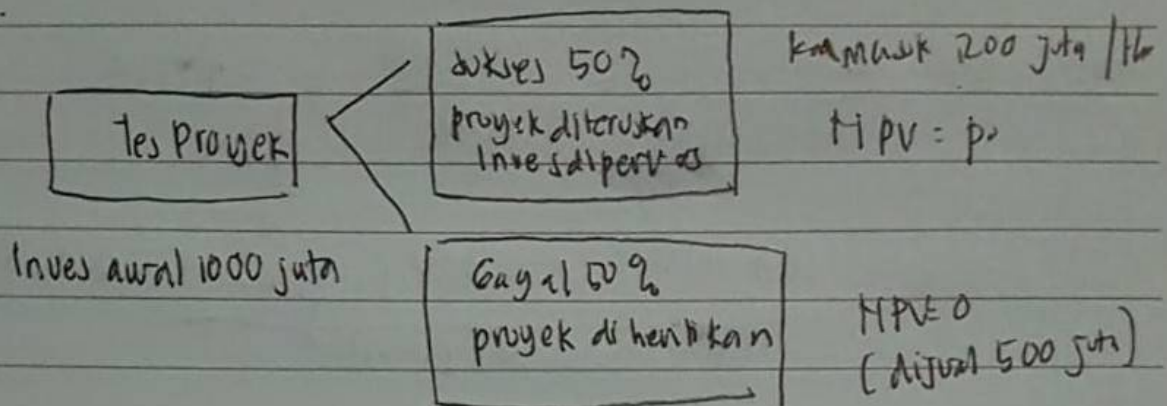 Tes Proyek
Inves awal 1000 juta
sukses 50%
proyek diteruskan
Inves diper
Kas masuk 200 juta / th
NPV =
Gagal 50%
proyek dihentikan
NPV= 0
(dijual 500 juta)